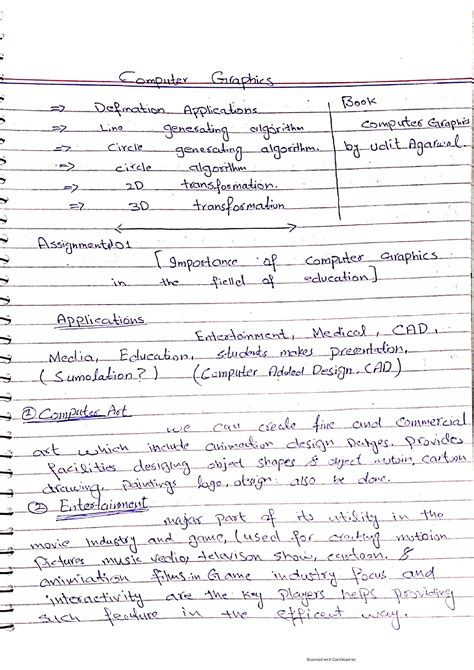 Computer Graphics
⇒ Defination Applications
⇒ Line generating algorithm
⇒ Circle generating algorithm.
⇒ circle algorithm
⇒ 2D transformation.
⇒ 3D transformation
Book
Computer Graphics
by Udit Agarwal.
Assignment#01
[Importance of Computer Graphics
in the field of education]
Applications
Entertainment, Medical, CAD,
Media, Education, students makes presentation,
(Sumolation?) (Computer Added Design, CAD)
① Computer Art
we can create fine and commercial
art which include animation design . Provides
designing object shapes & object motion, cartoon
drawing, paintings logo, design also be done.
② Entertainment
major part of its utility in the
movie Industry and game, (used for creating motion
Pictures music vedio, television show, cartoon. &
animiation films.in Game industry focus and
interactivity are the key players helps providing
such feature in the efficent way.
Scanned with CamScanner